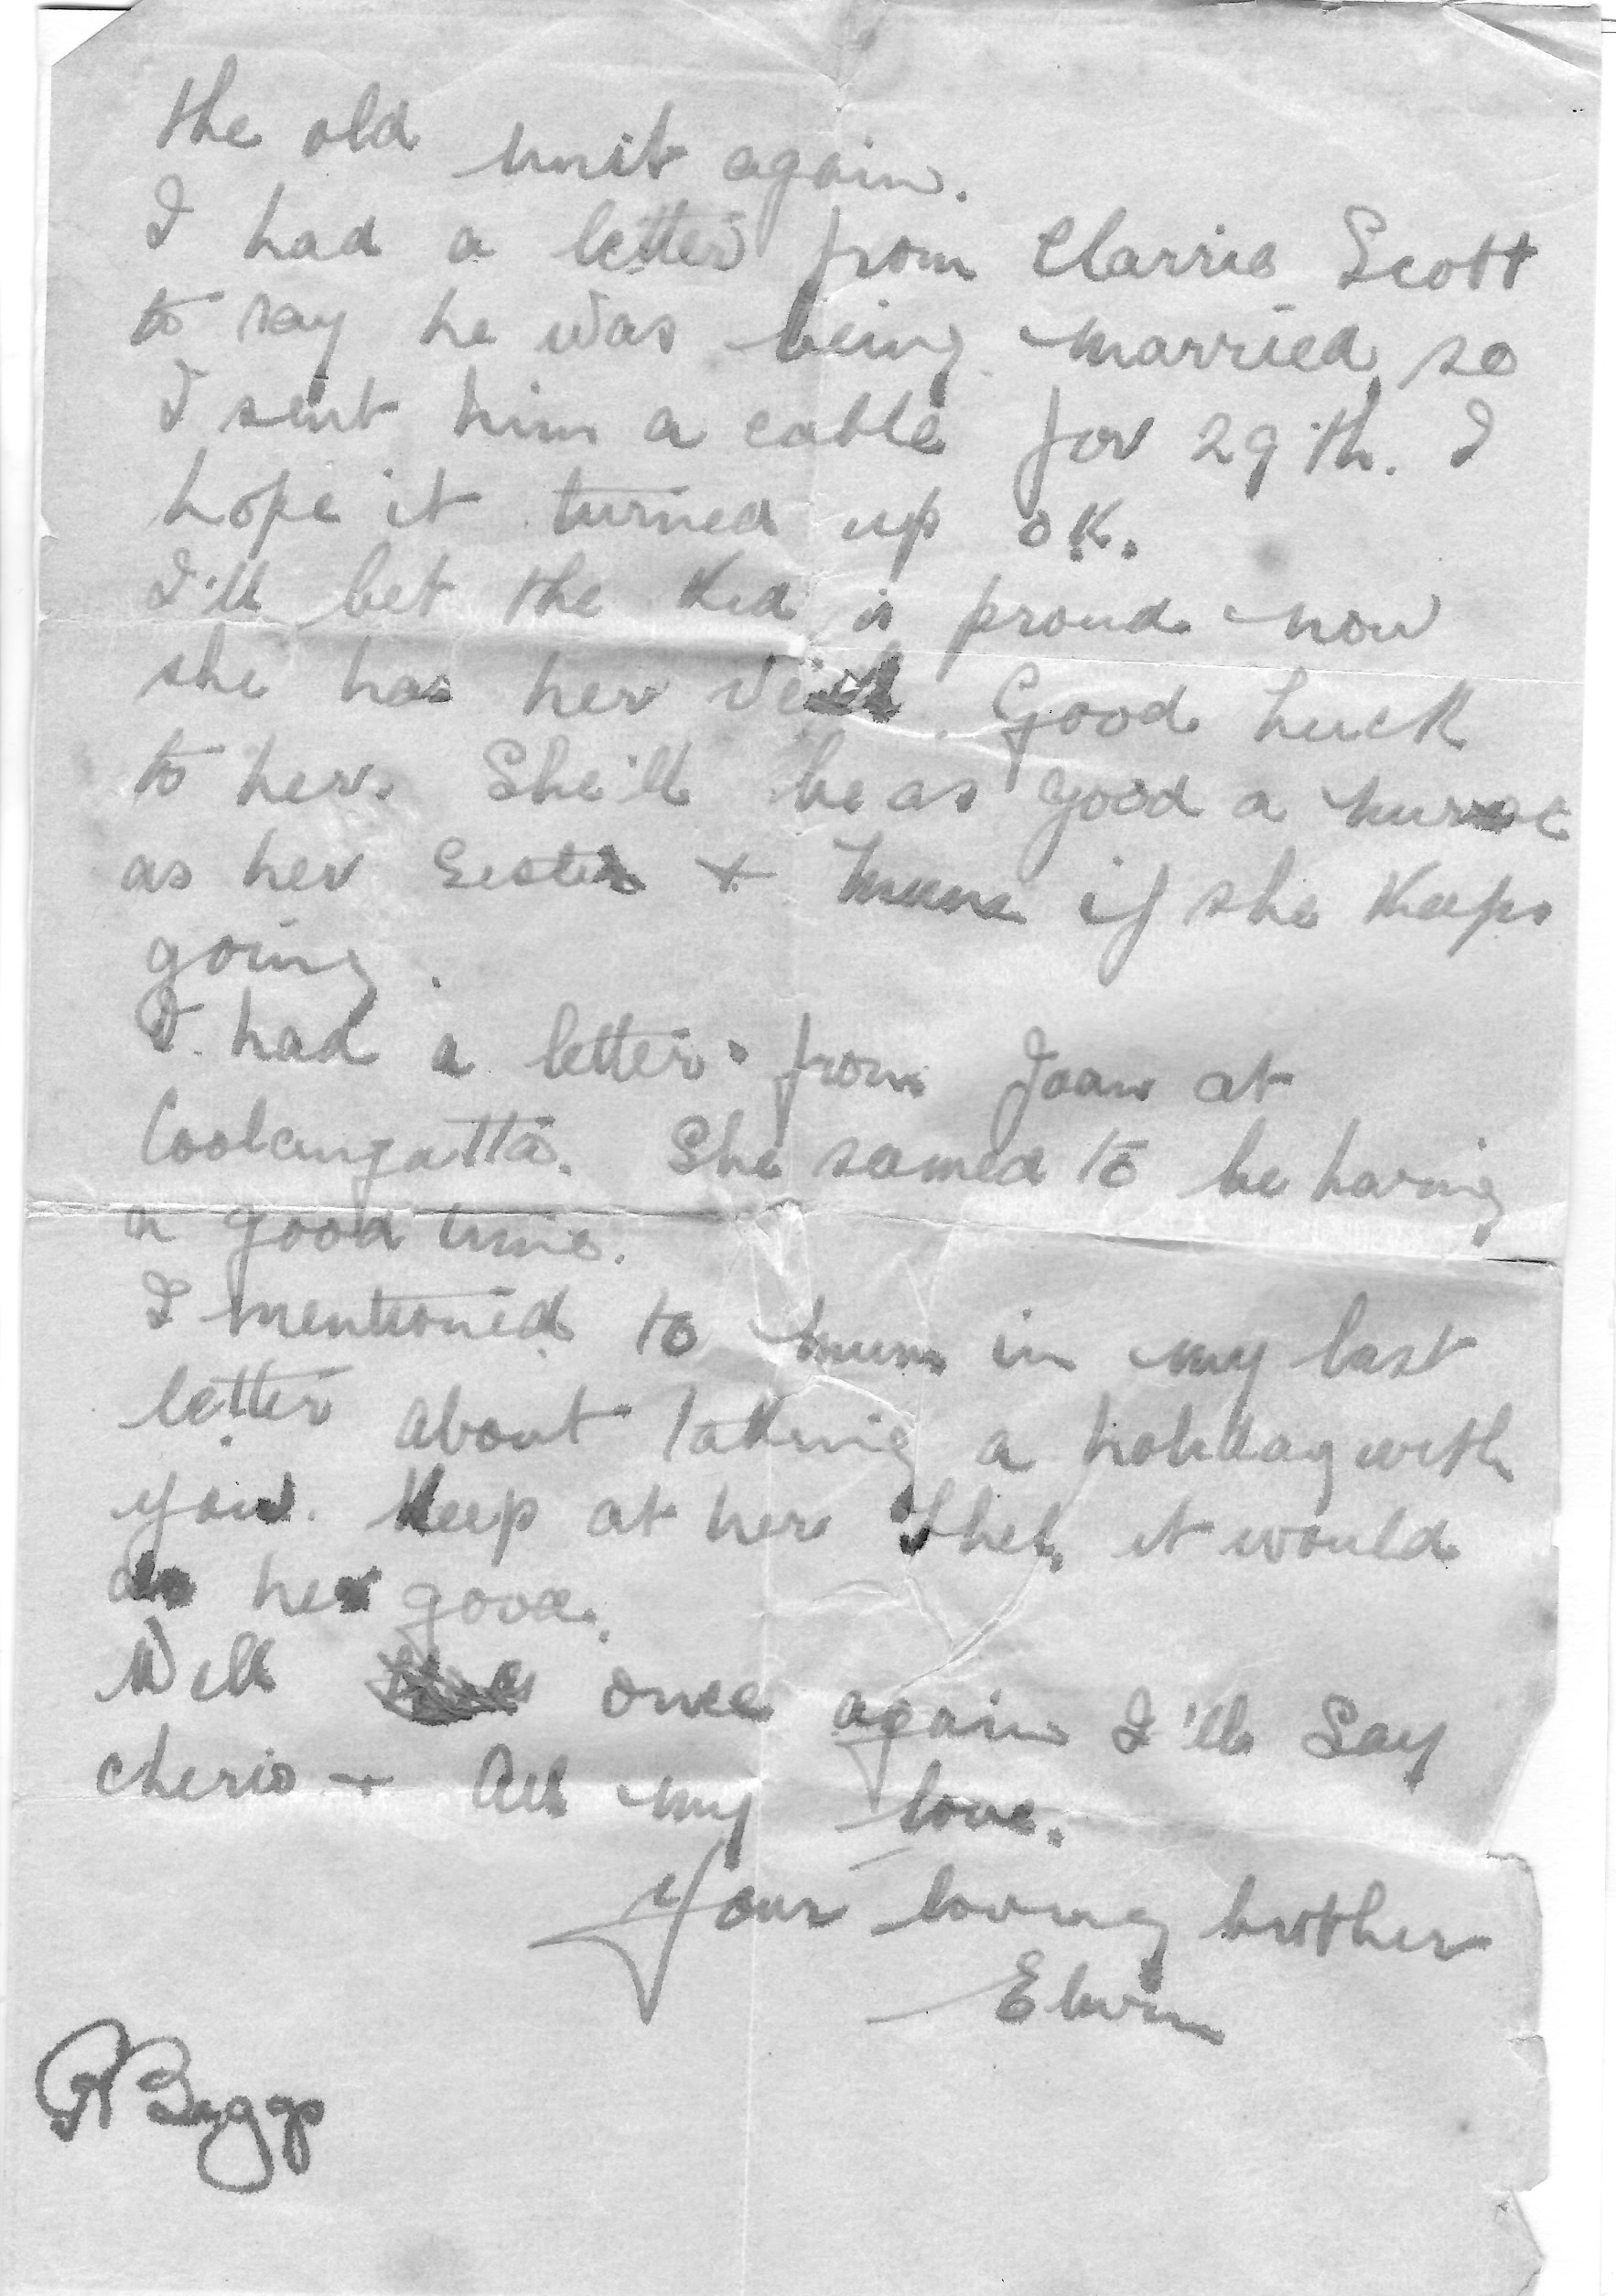 the old unit again.
I had a letter from Clarrie Scott
to say he was being married so
I sent him a cable for 29th. I
hope it turned up OK.
I'll bet the Kid is proud now
she has her veil. Good Luck
to her. She'll be as good a nurse
as her Sister + Mum if she Keeps
going.
I had a letter from Joan at
Coolangatta. She seemed to be having
a good time.
I mentioned to Mum in my last
letter about taking a holiday with
you. Keep at her Thel, it would
do her good.
Well once again I'll Say
cherio + All my love.
Your loving brother
Elwin
Baggs